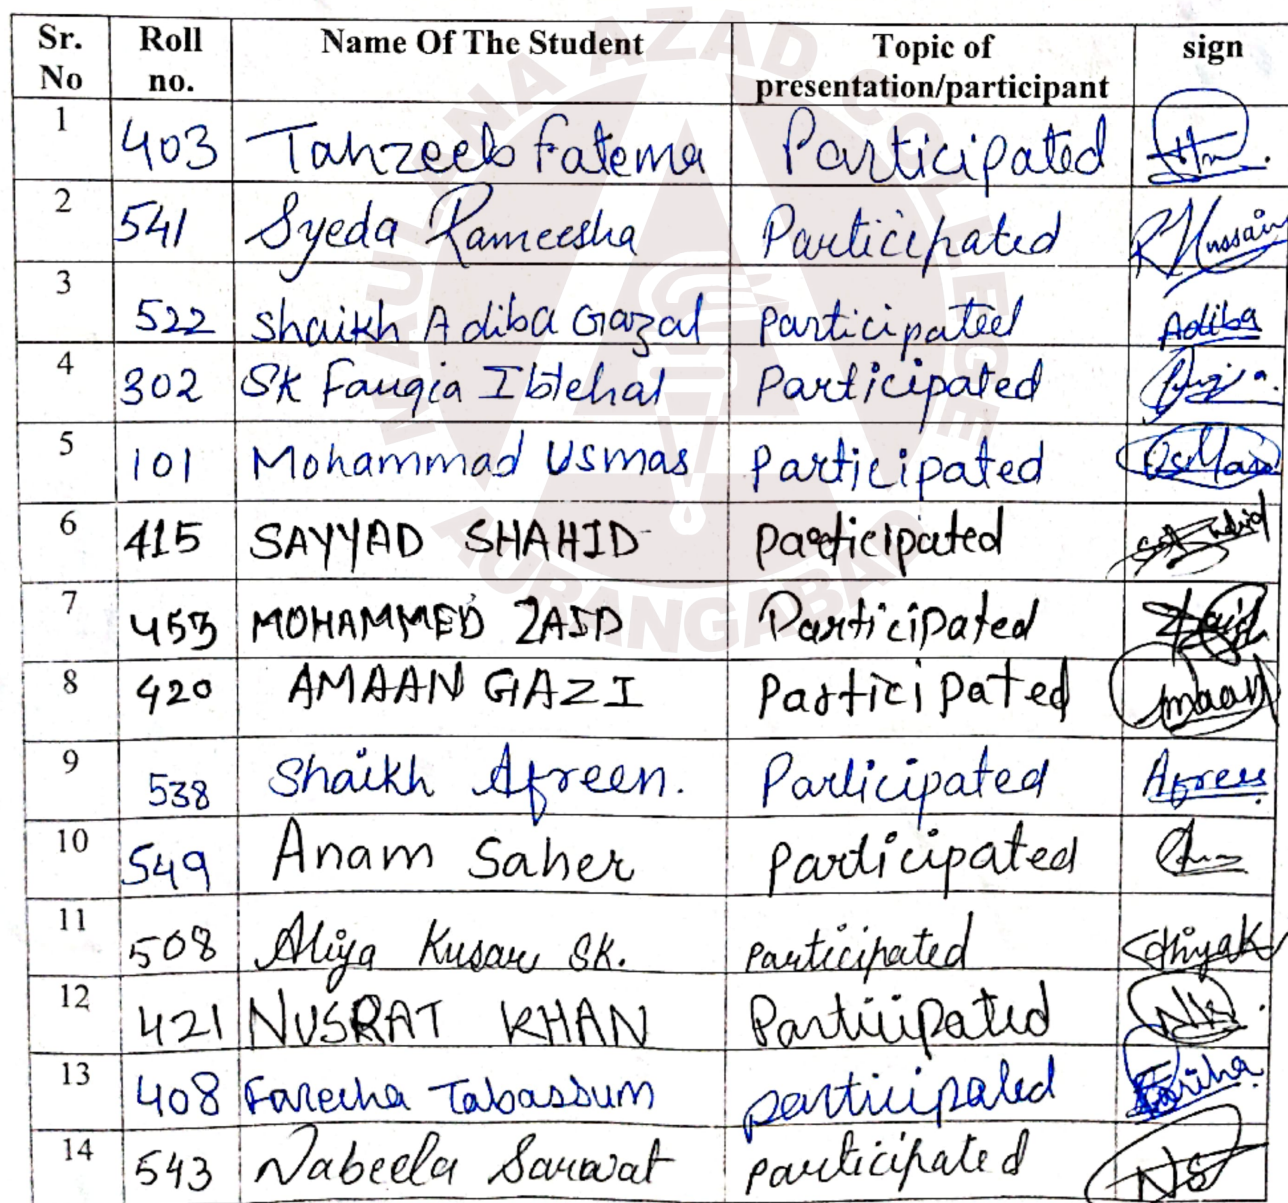 MAULANA AZAD COLLEGE
AURANGABAD
Sr. No Roll no. Name Of The Student Topic of presentation/participant sign
1 403 Tahzeeb Fatema Participated
2 541 Syeda Rameesha Participated R Hussain
3 522 Shaikh Adiba Gazal Participated Adiba
4 302 SK Fauqia Ibtehal Participated
5 101 Mohammad Usmas Participated
6 415 SAYYAD SHAHID Participated
7 453 MOHAMMED ZAID Participated Zaid
8 420 AMAAN GAZI Participated Amaan
9 538 Shaikh Afreen. Participated Afreen
10 549 Anam Saher Participated
11 508 Aliya Kusar SK. Participated AliyaK
12 421 NUSRAT KHAN Participated
13 408 Fareeha Tabassum participated Fariha
14 543 Nabeela Sarwat participated NS